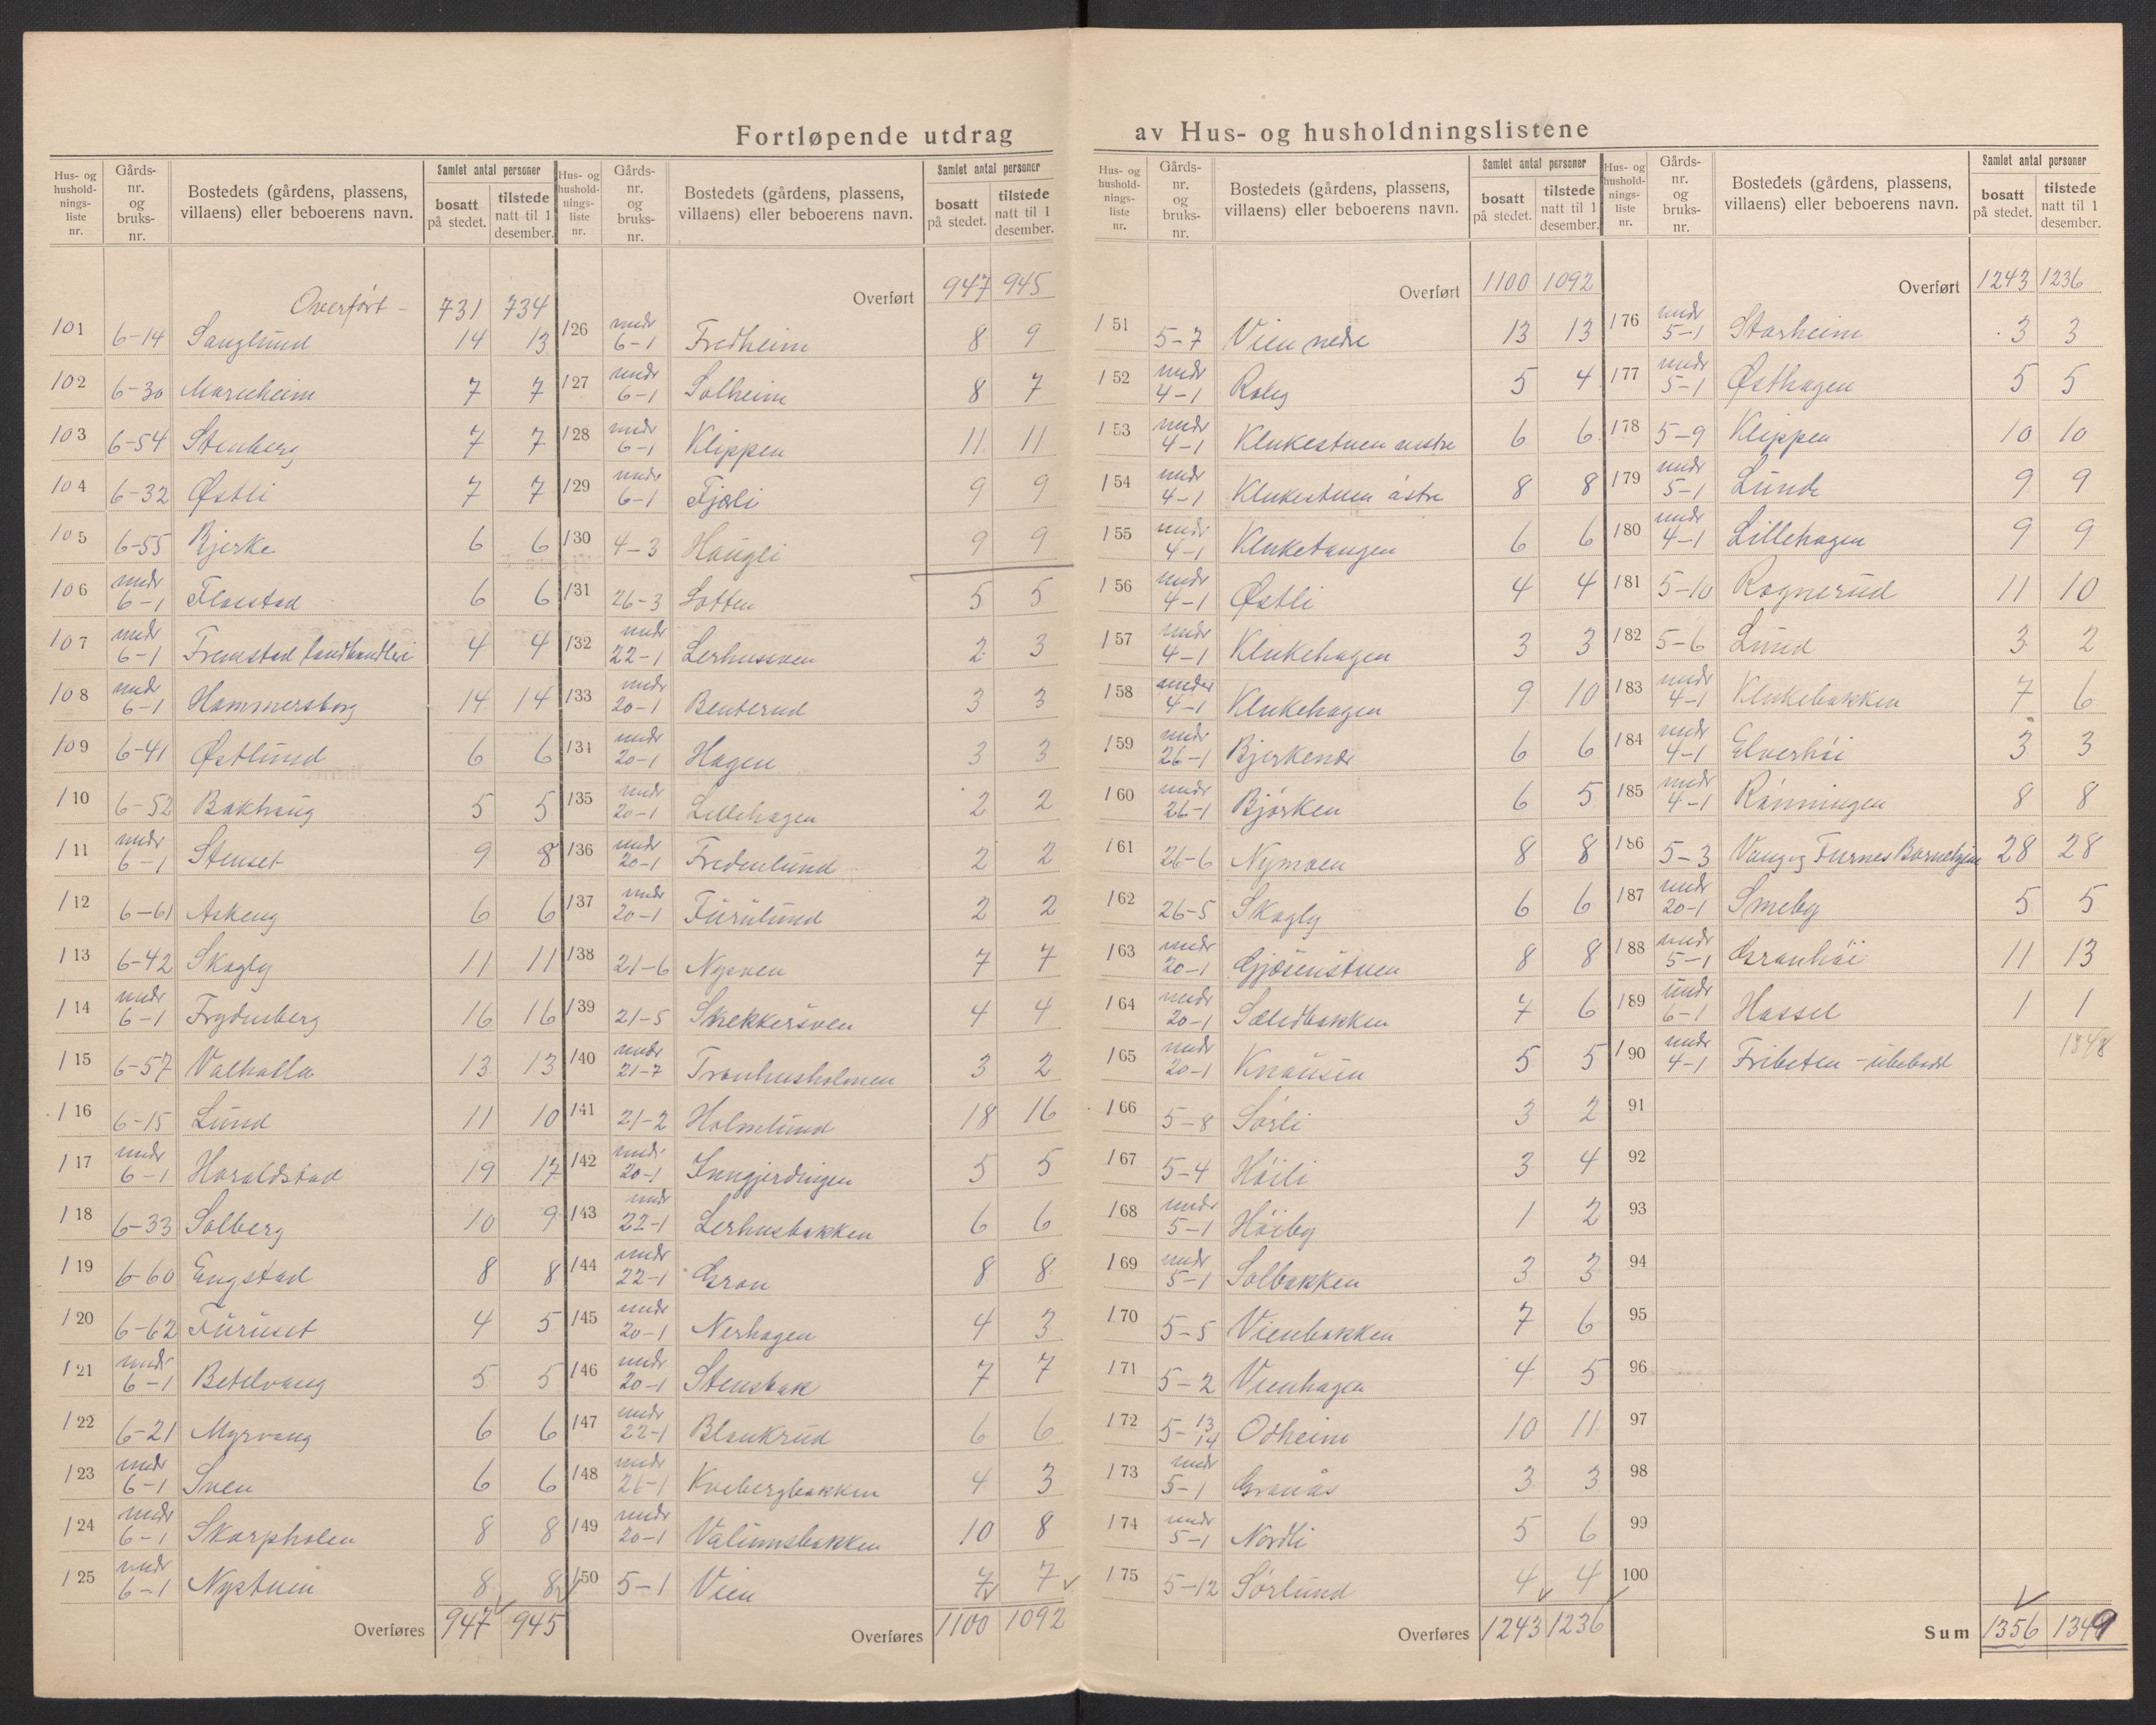 Fortløpende utdrag av Hus- og husholdningslistene
Hus- og hushold-nings-liste nr. Gårds-nr. og bruks-nr. Bostedets (gårdens, plassens, villaens) eller beboerens navn. Samlet antal personer bosatt på stedet. tilstede natt til 1 desember.
Overført - 731 734
101 6-14 Sauglund 14 13
102 6-30 Marieheim 7 7
103 6-54 Stenberg 7 7
104 6-32 Østli 7 7
105 6-55 Bjerke 6 6
106 undr 6-1 Flaestad 6 6
107 undr 6-1 Fremstad landhandleri 4 4
108 undr 6-1 Hammersborg 14 14
109 6-41 Østlund 6 6
110 6-52 Bakhaug 5 5
111 undr 6-1 Stenset 9 8
112 6-61 Askeng 6 6
113 6-42 Skogly 11 11
114 undr 6-1 Frydenberg 16 16
115 6-57 Valhalla 13 13
116 6-15 Lund 11 10
117 undr 6-1 Haraldstad 19 17
118 6-33 Solberg 10 9
119 6-60 Engstad 8 8
120 6-62 Furuset 4 5
121 undr 6-1 Betelvang 5 5
122 6-21 Myrvang 6 6
123 undr 6-1 Sveen 6 6
124 undr 6-1 Skarpholen 8 8
125 undr 6-1 Nystuen 8 8
Overføres 947 945
Hus- og hushold-nings-liste nr. Gårds-nr. og bruks-nr. Bostedets (gårdens, plassens, villaens) eller beboerens navn. Samlet antal personer bosatt på stedet. tilstede natt til 1 desember.
Overført 947 945
126 undr 6-1 Fredheim 8 9
127 undr 6-1 Solheim 8 7
128 undr 6-1 Klippen 11 11
129 undr 6-1 Fjæli 9 9
130 4-3 Haugli 9 9
131 26-3 Lotten 5 5
132 undr 22-1 Lerhussven 2 3
133 undr 20-1 Benterud 3 3
134 undr 20-1 Hagen 3 3
135 undr 20-1 Lillehagen 2 2
136 undr 20-1 Fredenlund 2 2
137 undr 20-1 Furulund 2 2
138 21-6 Nysven 7 7
139 21-5 Snekkersven 4 4
140 undr 21-7 Tranhusholmen 3 2
141 21-2 Holmlund 18 16
142 undr 20-1 Inngjerdingen 5 5
143 undr 22-1 Lerhusbakken 6 6
144 undr 22-1 Gran 8 8
145 undr 20-1 Nerhagen 4 3
146 undr 20-1 Stensbak 7 7
147 undr 22-1 Blankrud 6 6
148 undr 26-1 Kvebergbakken 4 3
149 undr 20-1 Valumsbakken 10 8
150 5-1 Vien 7 7
Overføres 1100 1092
Hus- og hushold-nings-liste nr. Gårds-nr. og bruks-nr. Bostedets (gårdens, plassens, villaens) eller beboerens navn. Samlet antal personer bosatt på stedet. tilstede natt til 1 desember.
Overført 1100 1092
151 5-7 Vien nedre 13 13
152 undr 4-1 Rolig 5 4
153 undr 4-1 Klukestuen vestre 6 6
154 undr 4-1 Klukestuen østre 8 8
155 undr 4-1 Kluketangen 6 6
156 undr 4-1 Østli 4 4
157 undr 4-1 Klukehagen 3 3
158 under 4-1 Klukehagen 9 10
159 undr 26-1 Bjerkende 6 6
160 undr 26-1 Bjørken 6 5
161 26-6 Nymoen 8 8
162 26-5 Skogly 6 6
163 undr 20-1 Gjøsenstuen 8 8
164 undr 20-1 Sæledbakken 7 6
165 undr 20-1 Knausen 5 5
166 5-8 Sørli 3 2
167 5-4 Høili 3 4
168 undr 5-1 Høiby 1 2
169 undr 5-1 Solbakken 3 3
170 5-5 Vienbakken 7 6
171 5-2 Vienhagen 4 5
172 5-13 14 Odheim 10 11
173 undr 5-1 Granås 3 3
174 undr 5-1 Nordli 5 6
175 5-12 Sørlund 4 4
Overføres 1243 1236
Hus- og hushold-nings-liste nr. Gårds-nr. og bruks-nr. Bostedets (gårdens, plassens, villaens) eller beboerens navn. Samlet antal personer bosatt på stedet. tilstede natt til 1 desember.
Overført 1243 1236
176 undr 5-1 Storheim 3 3
177 undr 5-1 Østhagen 5 5
178 5-9 Klippen 10 10
179 undr 5-1 Lunde 9 9
180 undr 4-1 Lillehagen 9 9
181 5-10 Rognerud 11 10
182 5-6 Lund 3 2
183 undr 4-1 Klukebakken 7 6
184 undr 4-1 Elverhøi 3 3
185 undr 4-1 Rønningen 8 8
186 5-3 Vang og Furnes Barnehjem 28 28
187 undr 20-1 Smeby 5 5
188 undr 5-1 Granhøi 11 13
189 undr 6-1 Hassel 1 1
1348
190 undr 4-1 Fribeten - ubebodd
91
92
93
94
95
96
97
98
99
100
Sum 1356 1349